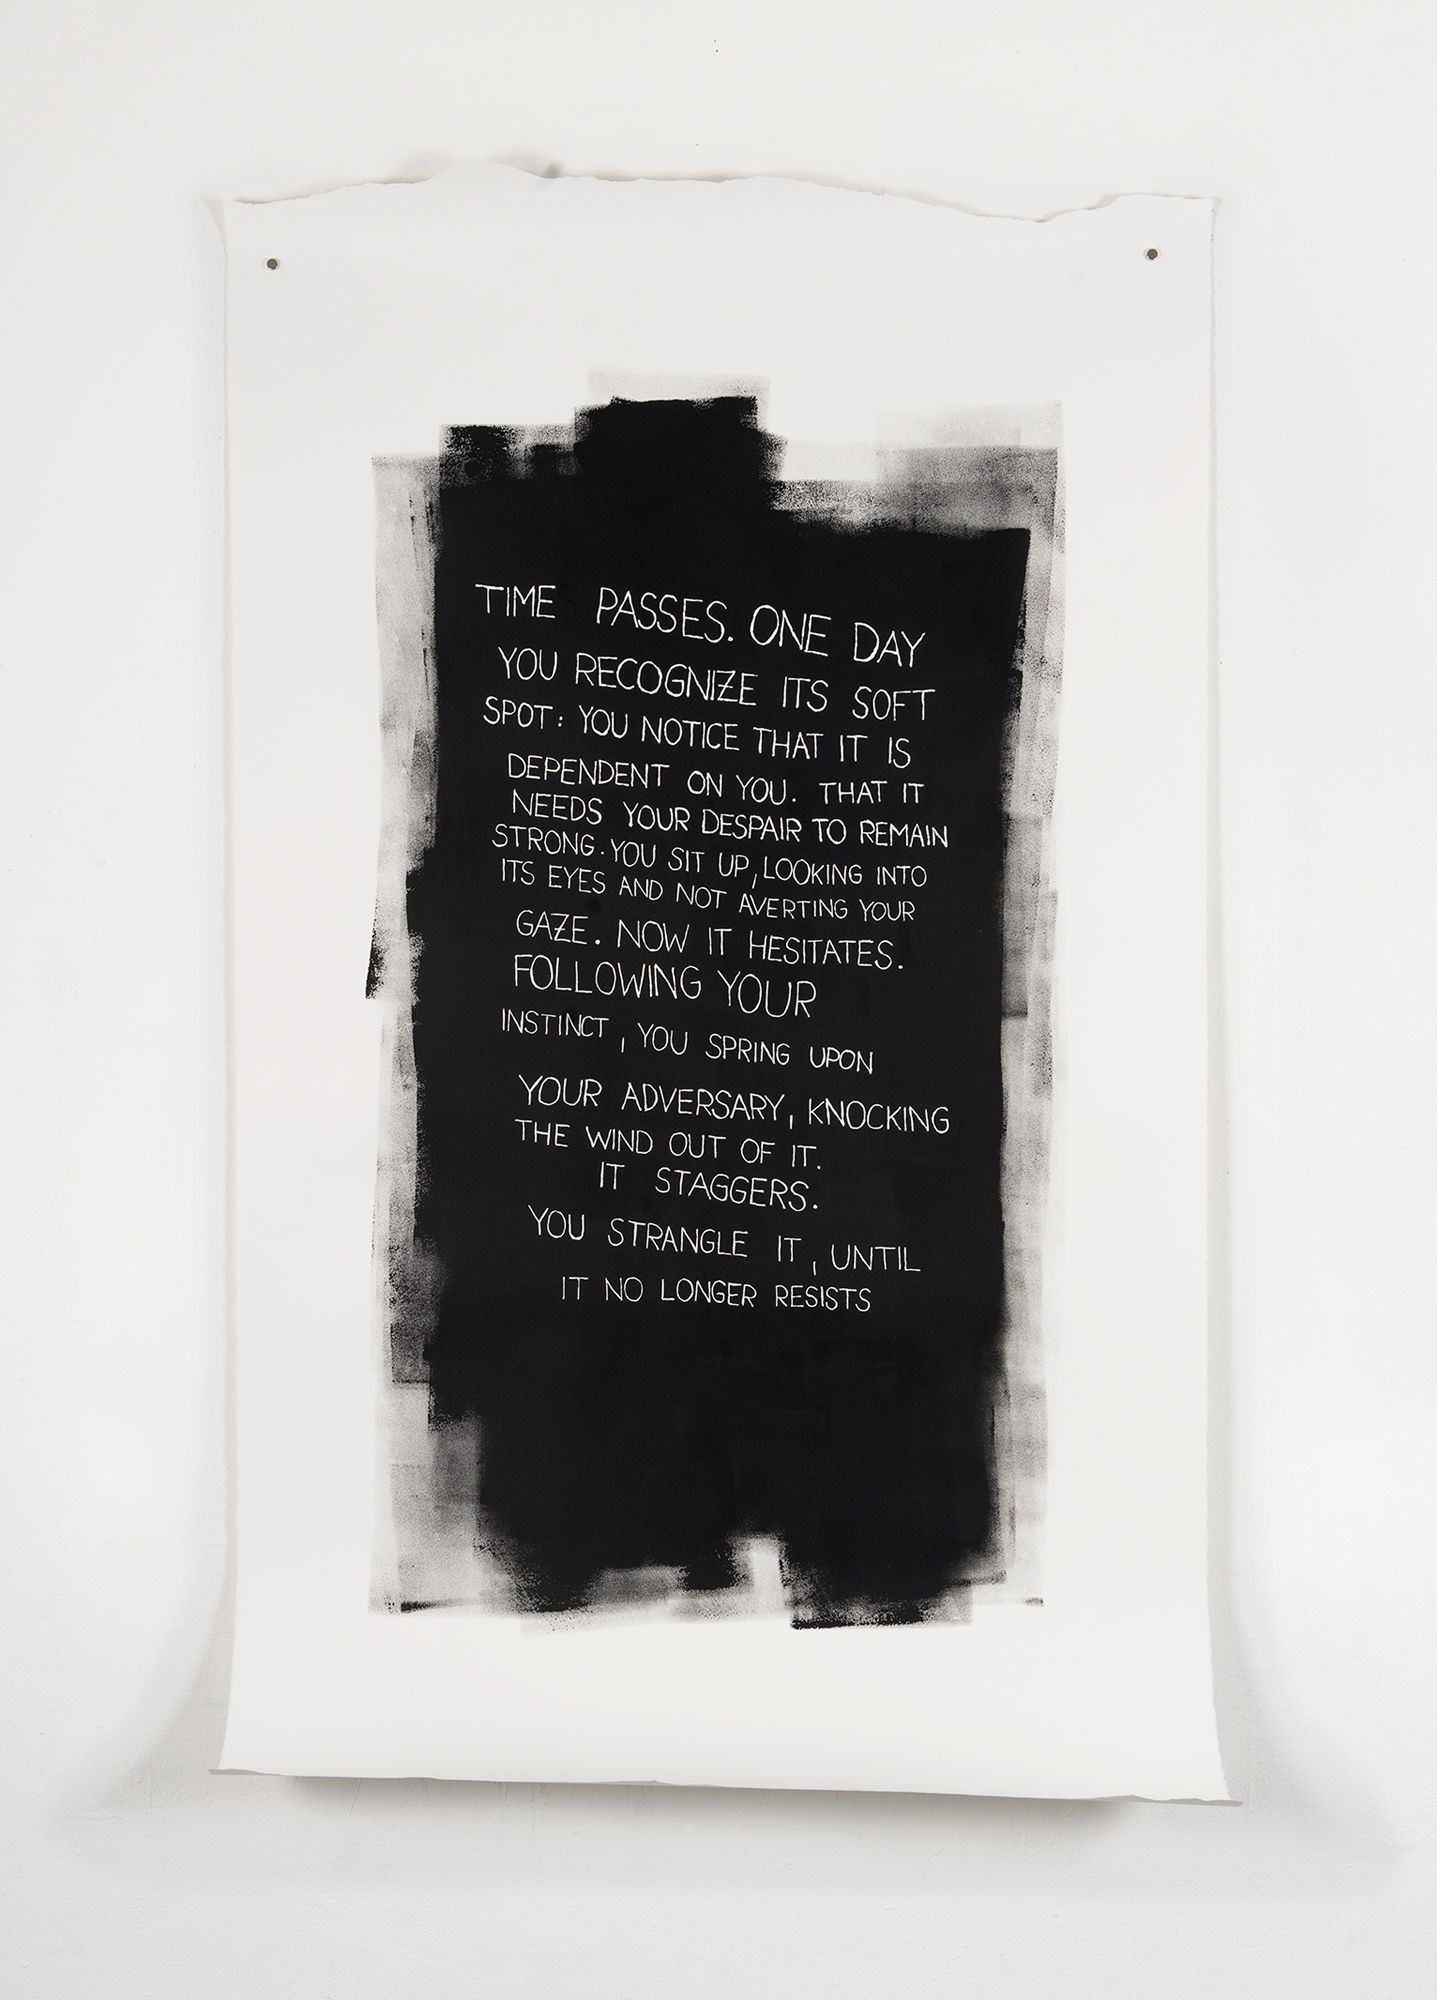 TIME PASSES. ONE DAY
YOU RECOGNIZE ITS SOFT
SPOT: YOU NOTICE THAT IT IS
DEPENDENT ON YOU. THAT IT
NEEDS YOUR DESPAIR TO REMAIN
STRONG. YOU SIT UP, LOOKING INTO
ITS EYES AND NOT AVERTING YOUR
GAZE. NOW IT HESITATES.
FOLLOWING YOUR
INSTINCT, YOU SPRING UPON
YOUR ADVERSARY, KNOCKING
THE WIND OUT OF IT.
IT STAGGERS.
YOU STRANGLE IT, UNTIL
IT NO LONGER RESISTS